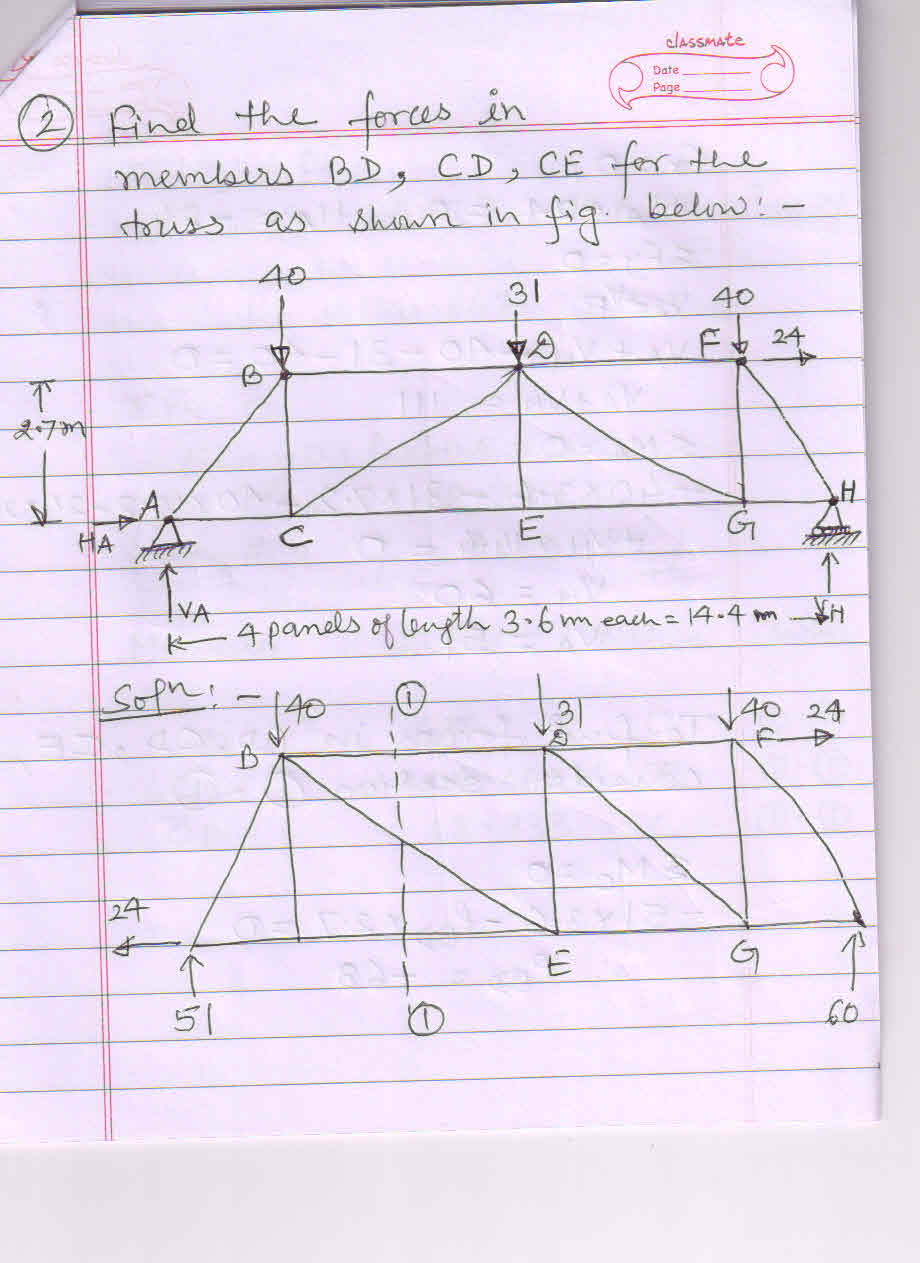 classmate
Date
Page
② Find the forces in
members BD, CD, CE for the
truss as shown in fig. below:-
40 31 40
B D F 24
2.7m
HA A C E G H
VA VH
4 panels of length 3.6m each = 14.4 m
Soln:-
40 ① 31 40 24
B D F
24
E G
51 ① 60